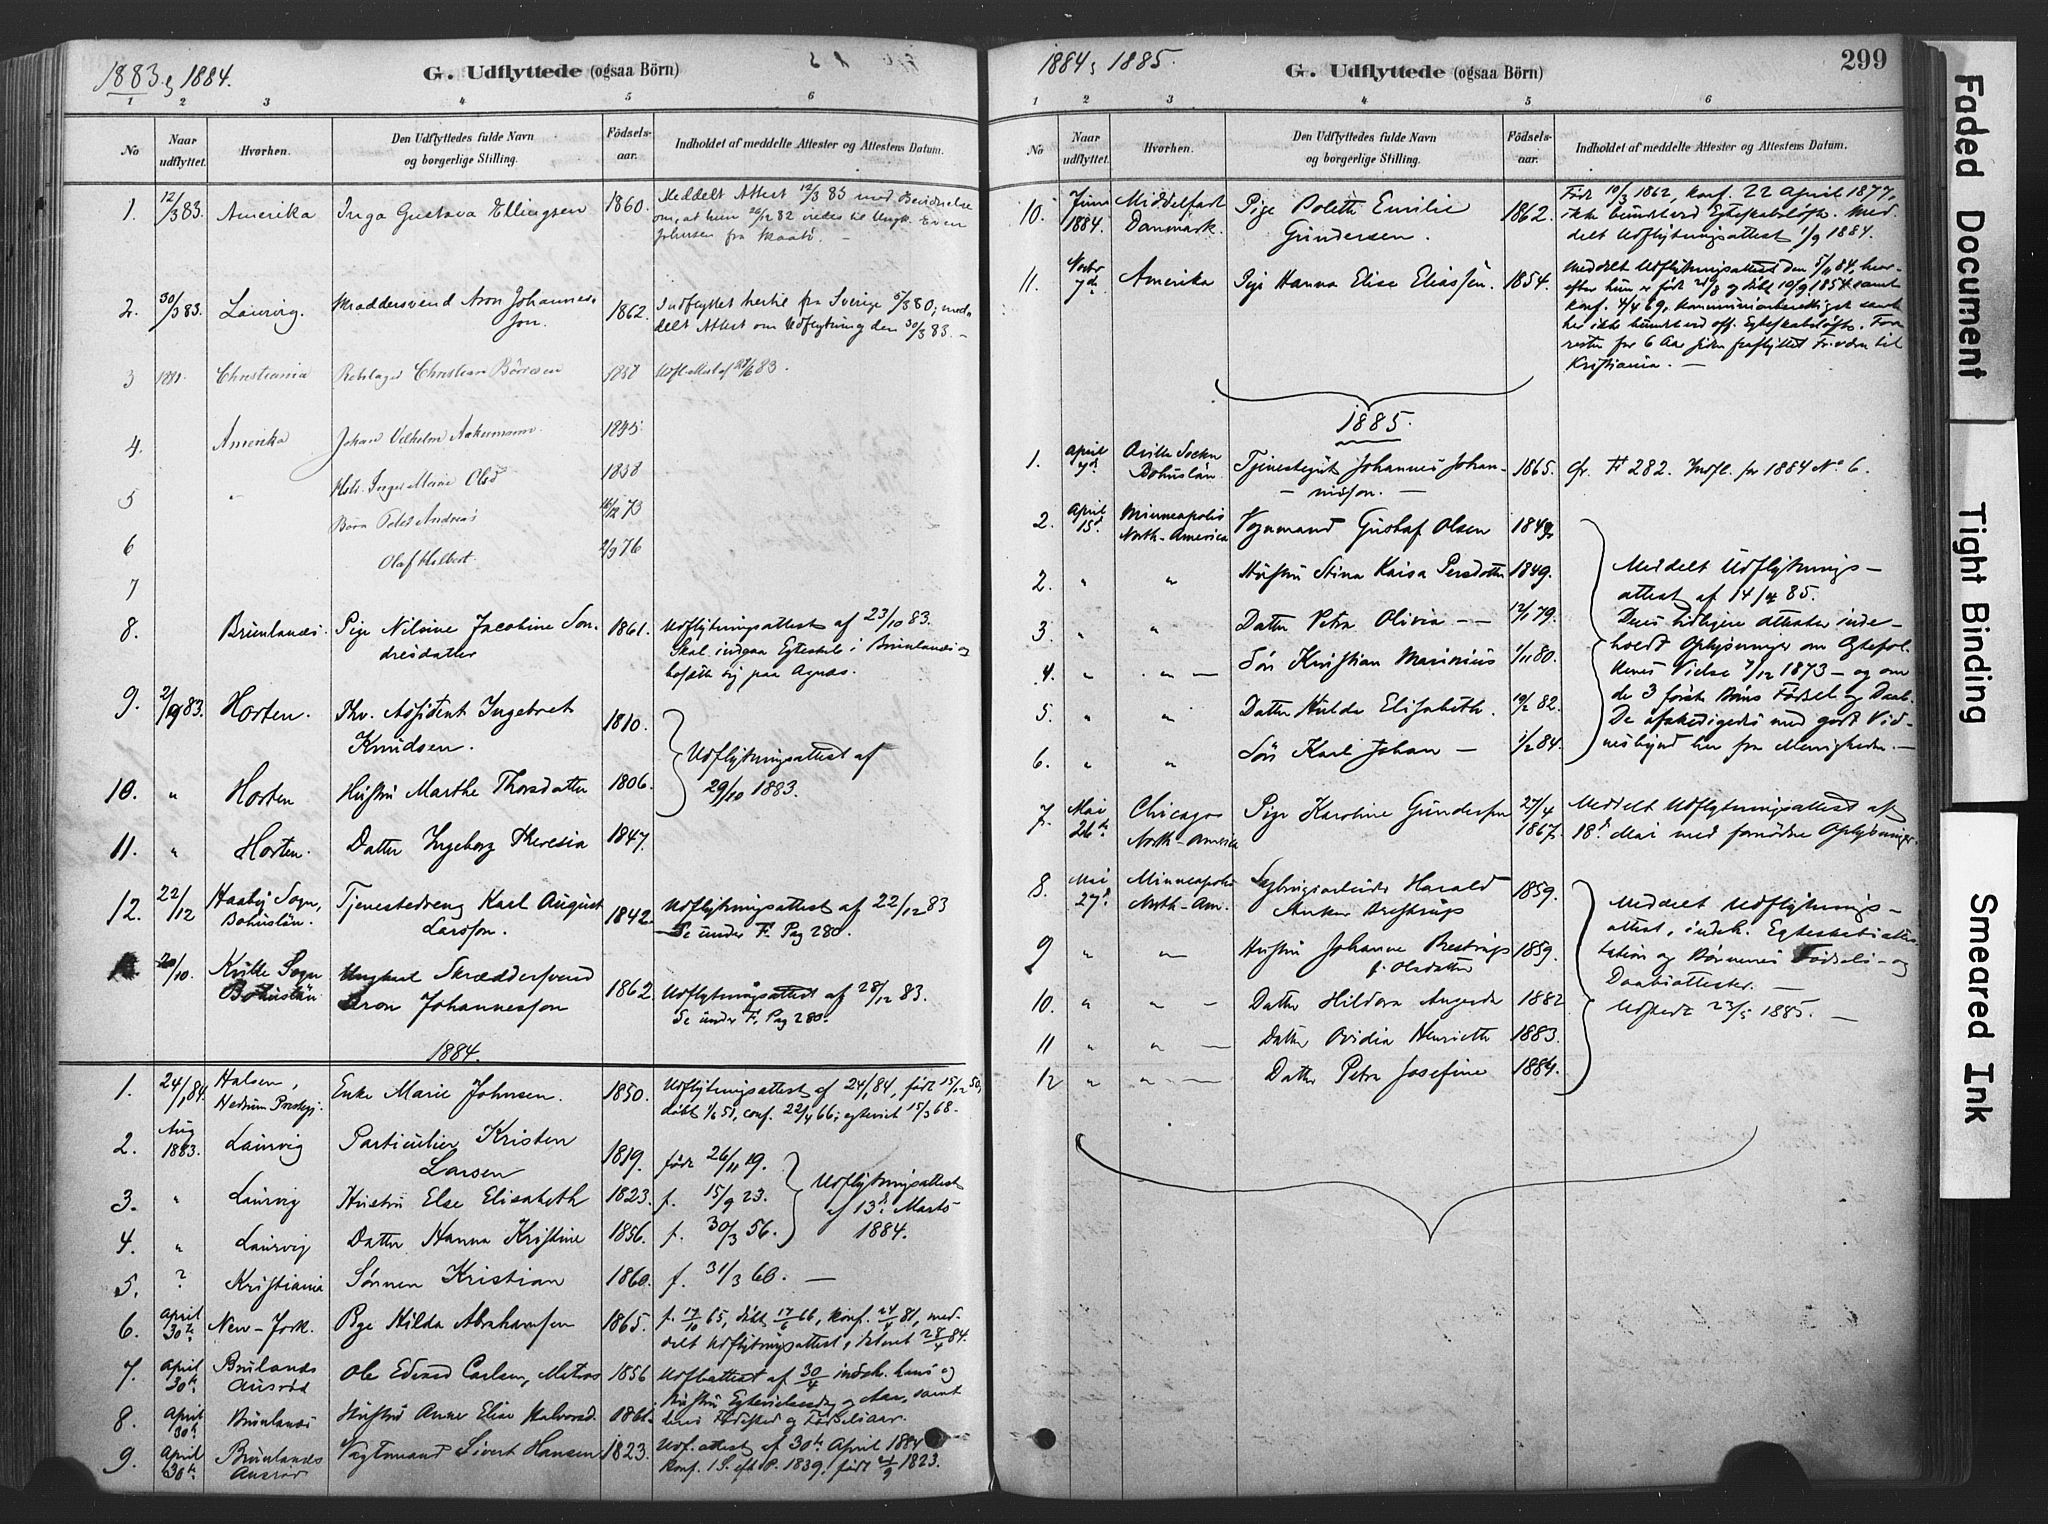 1883 & 1884.
G. Udflyttede (ogsaa Börn)
1 2 3 4 5 6
No
Naar udflyttet.
Hvorhen.
Den Udflyttedes fulde Navn og borgerlige Stilling.
Födsels-aar.
Indholdet af meddelte Attester og Attestens Datum.
1. 12/3 83. Amerika Inga Gustava Ellingsen 1860. Meddelt Attest 12/3 83 med Bevidnelse
om, at hun 26/12 82 viedes til Ungk. Even
Johnsen fra Skaatö. —
2. 30/3 83. Laurvig. Skræddersvend Aron Johannes- 1862. Indflyttet hertil fra Sverige 5/8 80; med-
son. delt Attest om Udflytning den 30/3 83. —
3 1881. Christiania Rebslager Christian Börresen 1857 Udfl. Attest af 27/6 83.
4. Amerika Johan Vilhelm Aakermann 1845.
5 " Hstr. Inger Marie Olsd 1838
6 Börn Peter Andreas 16/12 73
7 Olaf Halbert. 2/9 76
8. Brunlanæs. Pige Nilsine Jacobine Son- 1861. Udflytningsattest af 23/10 83.
dresdatter Skal indgaa Egteskab i Brunlanæs og
bosætte sig paa Agnæs.
9. 2/10 83. Horten. Fhv. Assistent Ingebret 1810.
Knudsen. Udflytningsattest af
10. " Horten Hustru Marthe Thorsdatter 1806. 29/10 1883.
11. " Horten. Datter Ingeborg Theresia 1847.
12. 22/12 Haaby Sogn, Tjenestedreng Karl August 1842. Udflytningsattest af 22/12 83
Bohuslän. Larsson. Se under F. Pag 280.
20/10. Kville Sogn Ungkarl Skræddersvend
Bohuslän Aron Johannesson 1862. Udflytningsattest af 28/12 83.
Se under F. Pag 280.
1884.
1. 24/1 84. Halsen, Enke Marie Johnsen. 1850. Udflytningsattest af 24/1 84, født 15/12 50,
Hedrum Prestegj. döbt 1/6 51, conf. 22/4 66; egteviet 15/3 68.
2. Aug 1883. Laurvig Particulier Kristen
Larsen 1819. født 26/11 19.
3. " Laurvig Hustru Else Elisabeth 1823. f. 15/9 23. Udflytningsattest
af 13d. Marts
4. " Laurvig Datter Hanna Kristine 1856. f. 30/3 56. 1884.
5. ? Kristiania Sønnen Kristian 1860. f. 31/3 60. —
6. April 30te New-York. Pige Hilda Abrahamsen 1865. f. 17/10 65, döbt 17/6 66, konf. 24/4 81, med-
delt Udflytningsattest, dateret 28/4 84.
7. April 30te Brunlanæs Ole Edvard Carlsen, Matros 1856 Udflattest af 30/4 indeh. hans og
8. April 30te Brunlanæs Hustru Anne Elise Halvorsd. 1861. Hustrus
deres Födested og Födselsaar.
9. April 30te Brunlanæs Vagtmand Sivert Hansen 1823. Udf. attest af 30te April 1884
konf. 1 S. eft. P. 1839. født 21/9 1823.
1884 & 1885.
G. Udflyttede (ogsaa Börn)
299
1 2 3 4 5 6
No
Naar udflyttet.
Hvorhen.
Den Udflyttedes fulde Navn og borgerlige Stilling.
Födsels-aar.
Indholdet af meddelte Attester og Attestens Datum.
10. Juni 1884. Middelfart Danmark. Pige Poleth Emilie 1862. Född 10/3 1862, konf. 22 April 1877,
Gundersen. ikke bundet ved Egteskabslöfte. Med-
delt Udflytningsattest 1/9 1884.
11. Novbr. Amerika Pige Hanna Elise Eliassen. 1854. Meddelt Udflytningsattest den 5/11 84, hvor-
efter hun er född 21/8 og döbt 10/9 1854 samt
konf. 4/4 69, kommunionberettiget samt
her ikke bundet ved off. Egteskabslöfte. For-
resten for 6 Aar siden fraflyttet Friværn til
Kristiania. —
1885.
1. April Qville Sockn Bohuslän. Tjenestegut Johannes Johan- 1865. Cfr. F 282. Indfl. for 1884 No 6.
— nisson. —
2. April 15d Minneapolis North-America Vognmand Gustaf Olsen 1849.
2. " " Hustru Stina Kaisa Persdatter 1849. Meddelt Udflytnings-
attest af 14/4 85.
3. " " Datter Petra Olivia — — 12/1 79. Deres tidligere attester inde-
holdt Oplysninger om Egtefol-
4. " " — Sön Kristian Marinius 1/11 80. kenes Vielse 7/12 1873 — og om
de 3 förste Börns Födsel og Daab.
5. " " Datter Hulda Elisabeth. 10/2 82. De afskediges med godt Vid-
6. " " Sön Karl Johan — 1/2 84. nesbyrd her fra Menigheden. —
7. Mai 26te Chicago North-America Pige Karoline Gundersen 27/4 1867. Meddelt Udflytningsattest af
18d. Mai med fornödne Oplysninger.
8. Mai 27d. Minneapolis North-Am. Sagbrugsarbeider Harald 1859. Meddelt Udflytnings-
attest, indeh. Egteskabsattes-
9 " " — Hustru Johanne Brestrup 1859. tation og Börnenes Födsels- og
f. Olsdatter Daabsattester. —
10. " " — Datter Hildora Augusta 1882 Udstedt 23/5 1885. —
11 " " — Datter Ovidia Henriette 1883.
12 " " — Datter Petra Josefine 1884.
Faded Document
Tight Binding
Smeared Ink